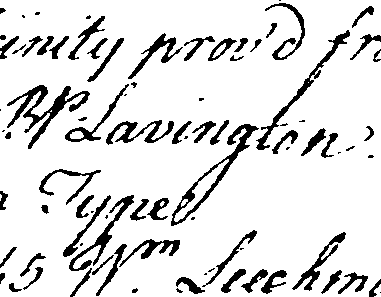 inity prov'd fr
Bp. Lavington.
Type
45 Wm. Leechm